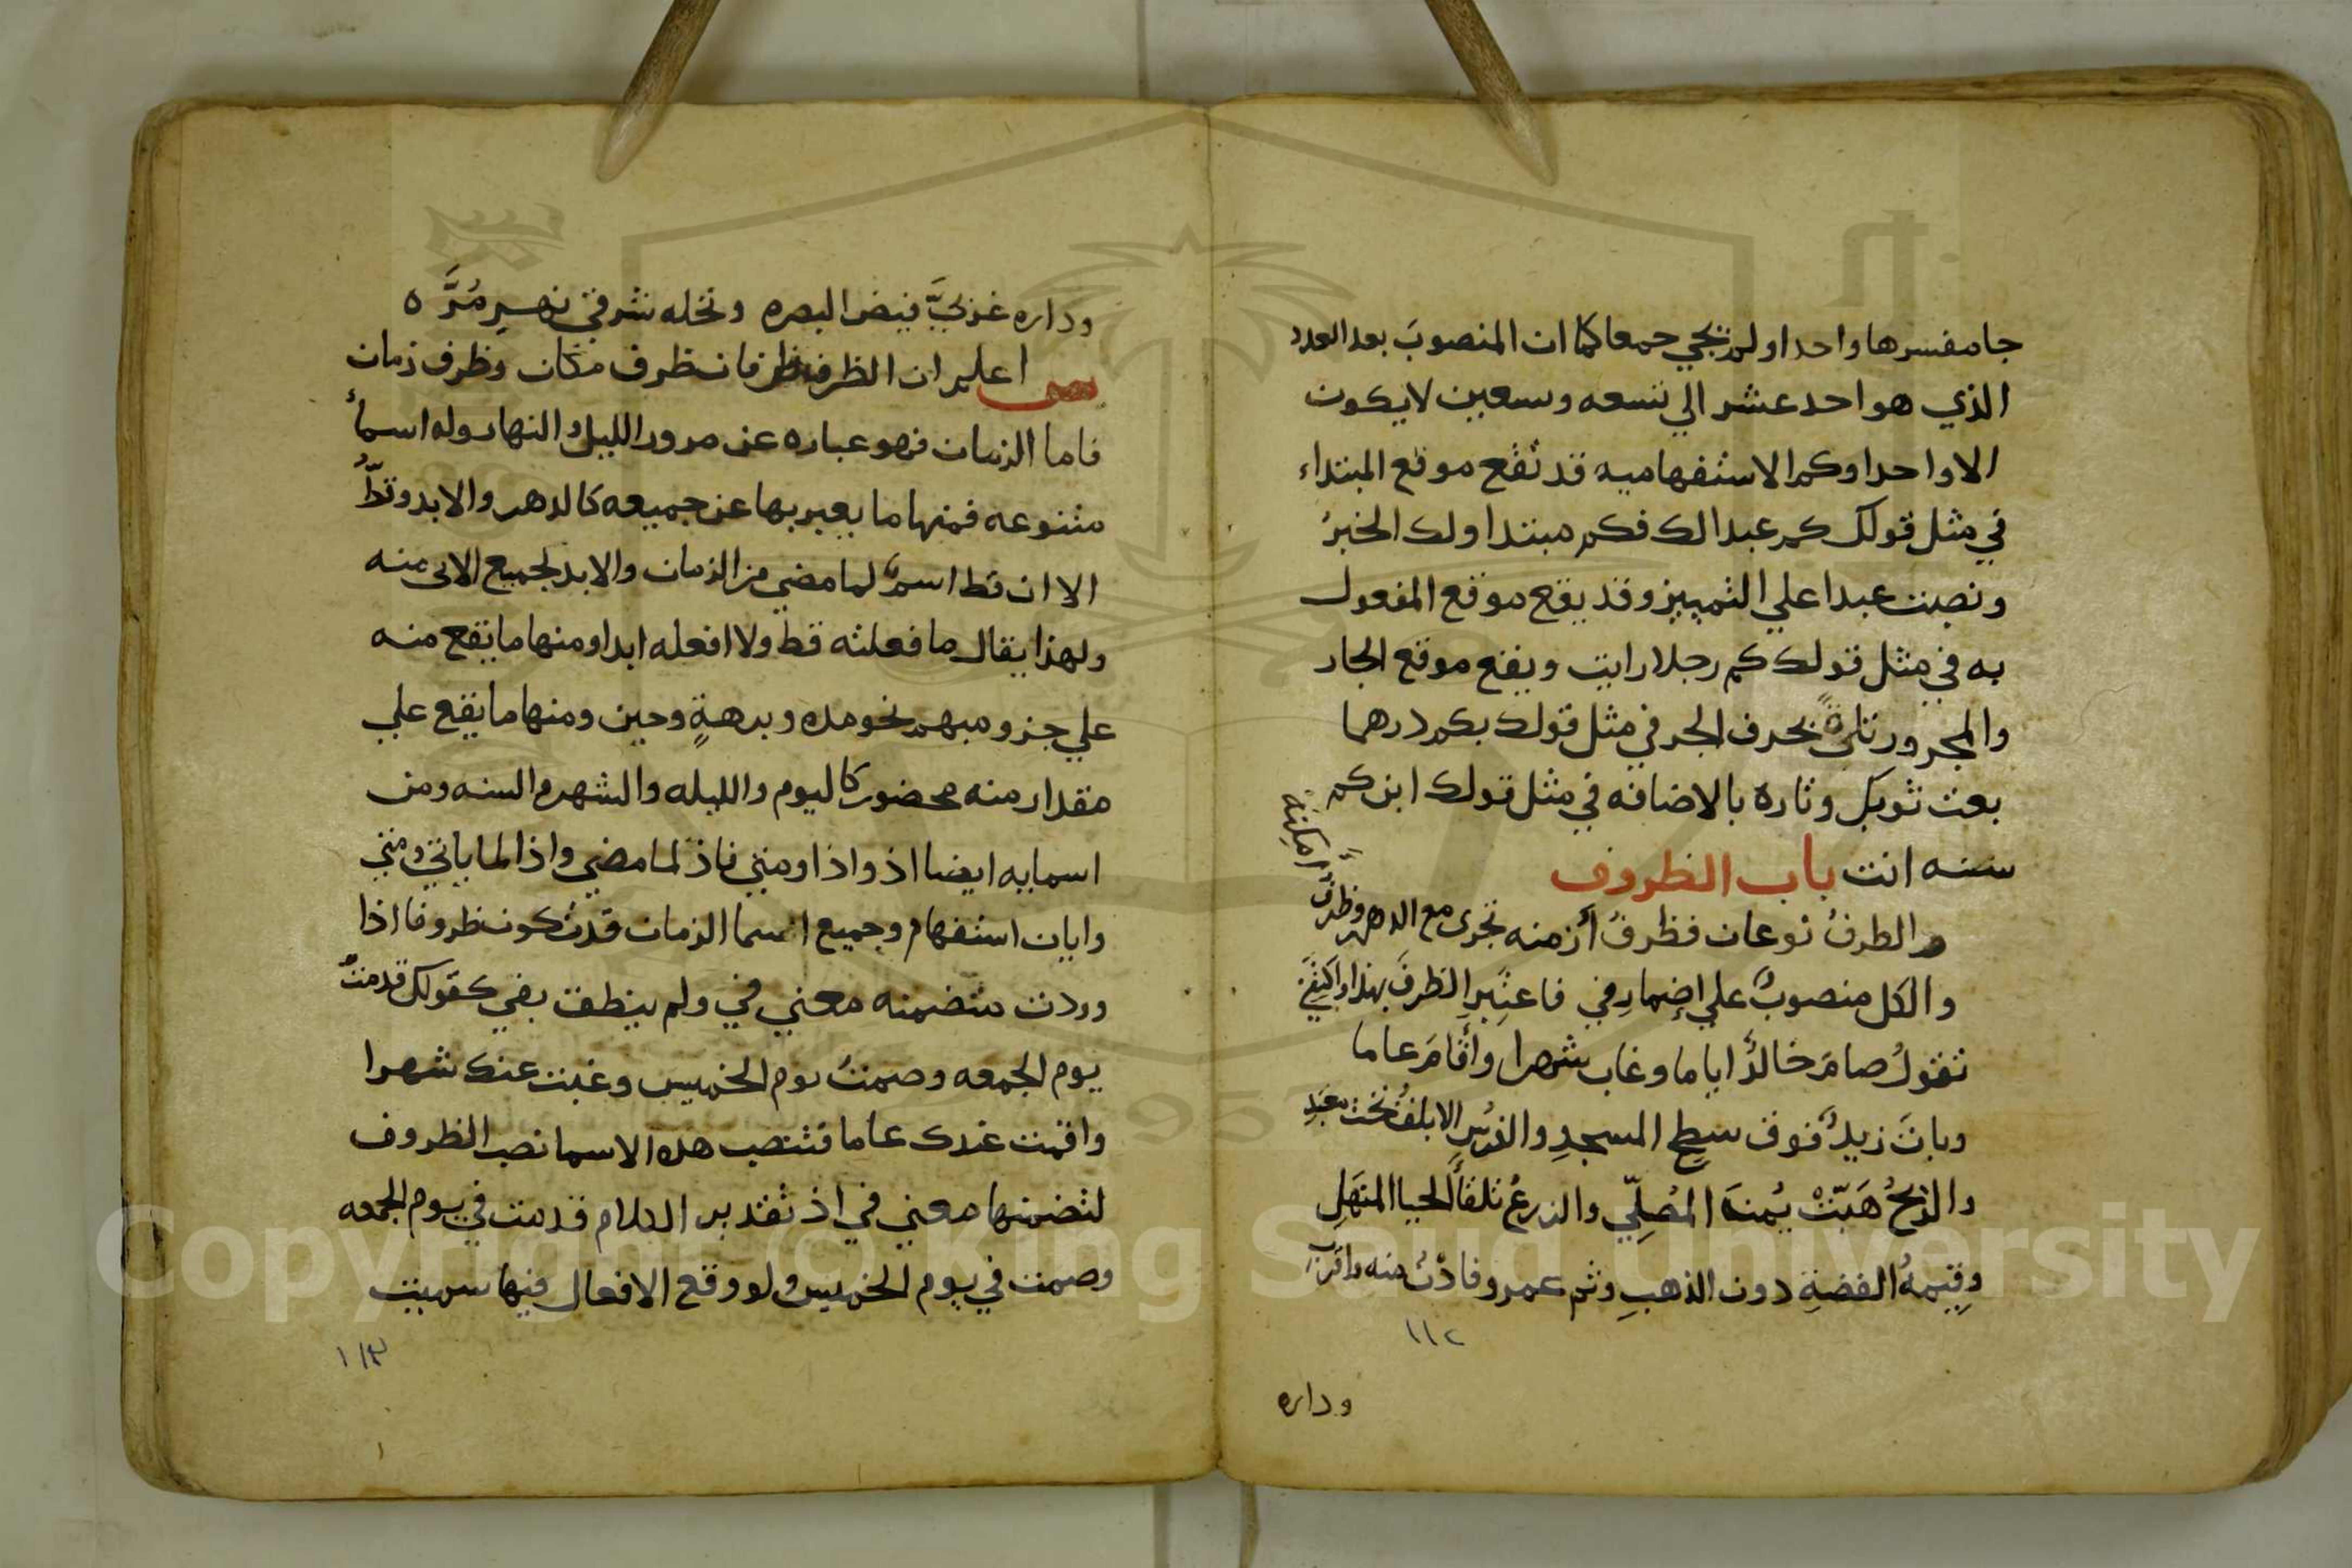 جا مفسرها واحدا ولم يجي جمعا كما ان المنصوب بعد العدد
الذي هو احد عشر الي تسعه وسعين لا يكون
الا واحدا وكم الاستفهاميه قد تقع موقع المبتداء
في مثل قولك كم عبدا لك فكم مبتدا ولك الخبرُ
ونصبت عبدا علي التمييز وقد يقع موقع المفعول
به في مثل قولك كم رجلا رايت ويقع موقع الجار
والمجرور تارةً بحرف الجر في مثل قولك بكم درهما
بعت ثوبك وتارة بالاضافه في مثل قولك ابن كم
سنه انت باب الظروف
والظرفُ نوعان فظرفُ أزمنه تجرى مع الدهر وظرفُ امكنة
والكل منصوبٌ علي إضمارِ في فاعتبرِ الظرفَ بهذا واكتفَي
تقولُ صامَ خالدٌ اياما وغاب شهرا وأقامَ عاما
وباتَ زيدٌ فوقَ سطحِ المسجدِ والفرسُ الابلقُ تحتَ معبدِ
والريحُ هَبّتْ يُمنةَ المُصلّي والزرعُ تلقآ الحيا المنهَلِ
وقيمةُ الفضةِ دون الذهبِ وثم عمرو فادْنُ منه واقربِ
١١٢
وداره
وداره غربيَّ فيض البصره ونخله شرقي نهرِ مُرَّه
اعلم ان الظرف ظرفان ظرف مكان وظرف زمان
فاما الزمان فهو عباره عن مرور الليل والنهار وله اسمأ
متنوعه فمنها ما يعبر بها عن جميعه كالدهر والابد وقطُّ
الا ان قط اسمٌ لما مضي من الزمان والابد لجميع الاتى منه
ولهذا يقال ما فعلته قط ولا افعله ابدا ومنها ما يقع منه
علي جزو مبهم نحو مده وبرهةٍ وحين ومنها ما يقع علي
مقدار منه محضور كاليوم والليله والشهر والسنه ومن
اسمايه ايضا اذ واذا ومتي فاذ لما مضي واذا لما ياتي ومتي
وايان استفهام وجميع اسما الزمان قد تكون ظروفا اذا
وردت متضمنه معني في ولم ينطق بفي كقولك قدمتُ
يوم الجمعه وصمتُ يوم الخميس وغبت عنك شهرا
واقمت عندك عاما فتنصب هذه الاسما نصب الظروف
لتضمنها معني في اذ تقدير الكلام قدمت في يوم الجمعه
وصمت في يوم الخميس ولو وقع الافعال فيها سميت
١١٣
Copyright © King Saud University